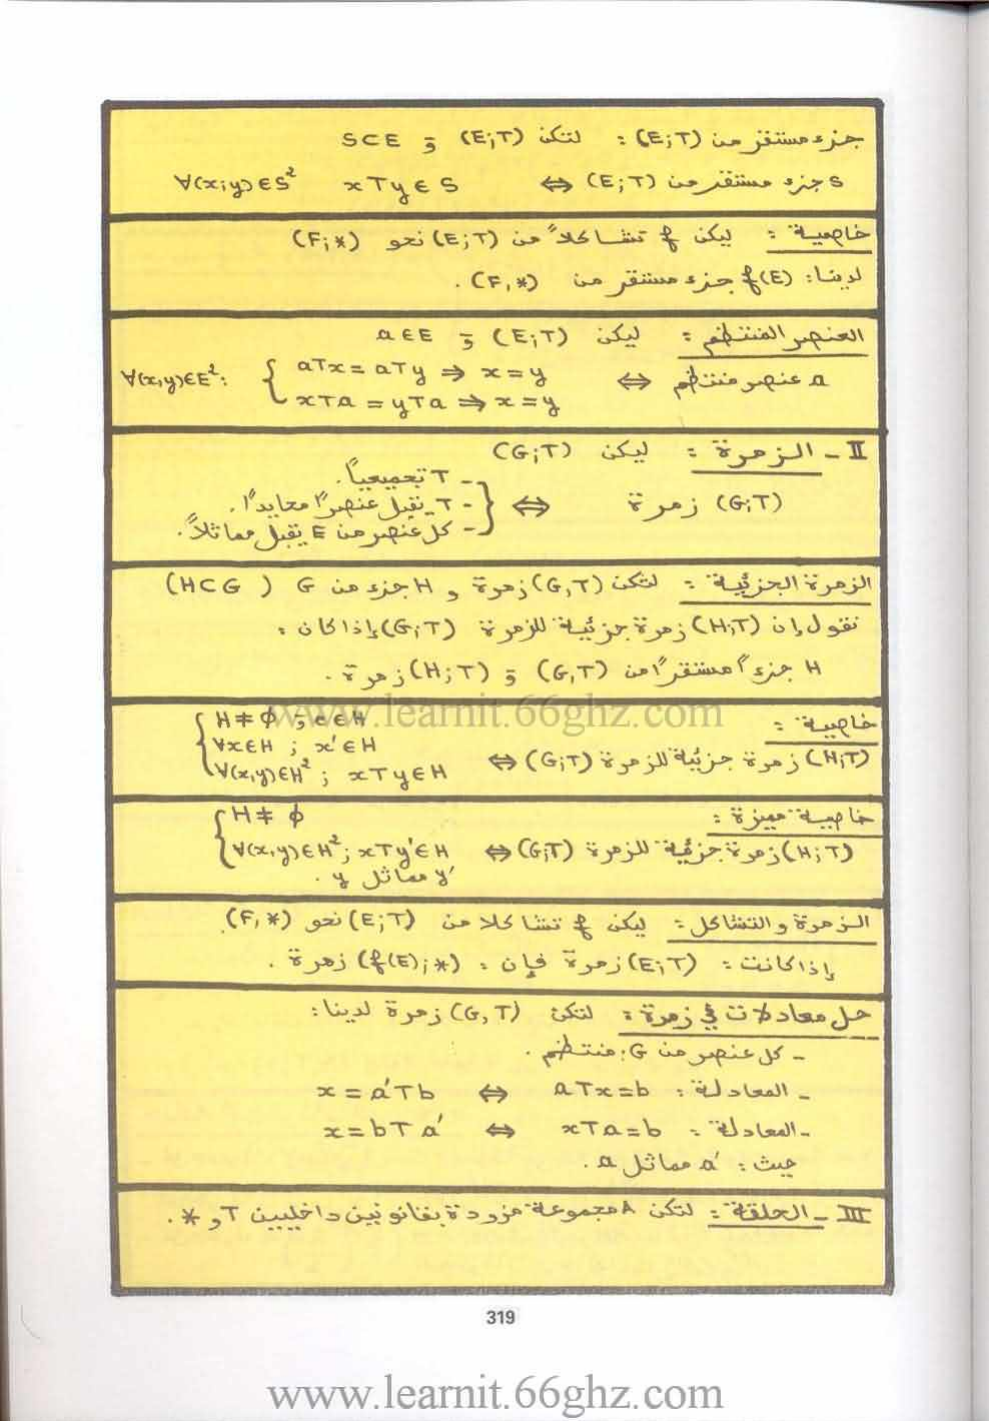 جزء مستقر من (E;T) : لتكن (E;T) و S⊂E
S جزء مستقر من (E;T) ⇔ ∀(x;y)∈S² xTy∈S
خاصية : ليكن f تشاكلاً من (E;T) نحو (F;*)
لدينا : f(E) جزء مستقر من (F,*) .
العنصر المنتظم : ليكن (E;T) و a∈E
a عنصر منتظم ⇔ ∀(x,y)∈E²: { aTx = aTy ⇒ x=y
xTa = yTa ⇒ x=y
II - الزمرة : ليكن (G;T)
- T تجميعياً.
(G;T) زمرة ⇔ { - T يقبل عنصراً محايداً.
- كل عنصر من E يقبل مماثلاً.
الزمرة الجزئية : لتكن (G,T) زمرة و H جزء من G (H⊂G)
نقول إن (H;T) زمرة جزئية للزمرة (G;T) إذا كان :
H جزءاً مستقراً من (G,T) و (H;T) زمرة .
www.learnit.66ghz.com
خاصية : { H≠∅ و e∈H
∀x∈H ; x'∈H
(H;T) زمرة جزئية للزمرة (G;T) ⇔ ∀(x,y)∈H² ; xTy∈H
خاصية مميزة : { H≠∅
(H;T) زمرة جزئية للزمرة (G;T) ⇔ ∀(x,y)∈H² ; xTy'∈H
y' مماثل y .
الزمرة والتشاكل : ليكن f تشاكلا من (E;T) نحو (F,*).
إذا كانت : (E;T) زمرة فإن : (f(E);*) زمرة .
حل معادلات في زمرة : لتكن (G,T) زمرة لدينا :
- كل عنصر من G: منتظم .
- المعادلة : aTx=b ⇔ x = a'Tb
- المعادلة : xTa=b ⇔ x=bTa'
حيث : a' مماثل a .
III - الحلقة : لتكن A مجموعة مزودة بقانونين داخليين T و * .
319
www.learnit.66ghz.com